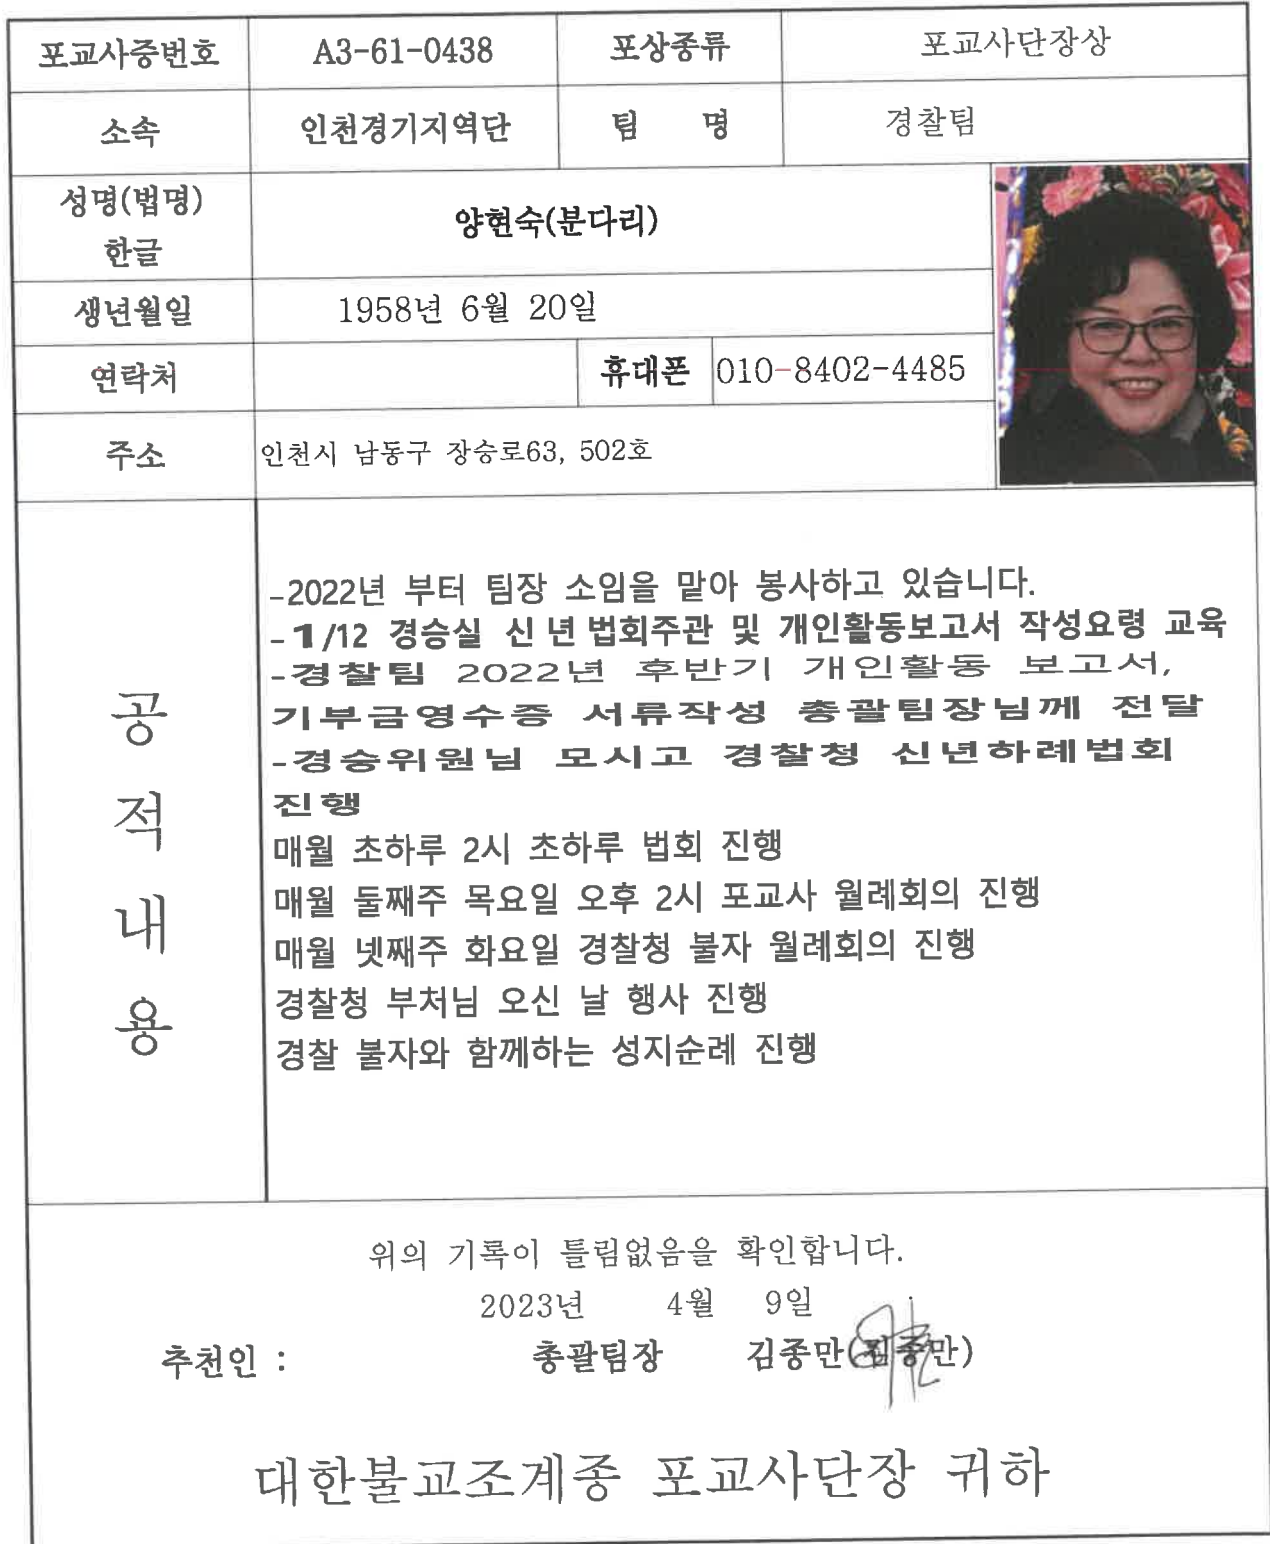 포교사증번호 A3-61-0438 포상종류 포교사단장상
소속 인천경기지역단 팀 명 경찰팀
성명(법명)
한글
양현숙(분다리)
생년월일 1958년 6월 20일
연락처 휴대폰 010-8402-4485
주소 인천시 남동구 장승로63, 502호
공적내용
-2022년 부터 팀장 소임을 맡아 봉사하고 있습니다.
-1/12 경승실 신년법회주관 및 개인활동보고서 작성요령 교육
-경찰팀 2022년 후반기 개인활동 보고서,
기부금영수증 서류작성 총괄팀장님께 전달
-경승위원님 모시고 경찰청 신년하례법회
진행
매월 초하루 2시 초하루 법회 진행
매월 둘째주 목요일 오후 2시 포교사 월례회의 진행
매월 넷째주 화요일 경찰청 불자 월례회의 진행
경찰청 부처님 오신 날 행사 진행
경찰 불자와 함께하는 성지순례 진행
위의 기록이 틀림없음을 확인합니다.
2023년 4월 9일
추천인 : 총괄팀장 김종만(김종만)
대한불교조계종 포교사단장 귀하